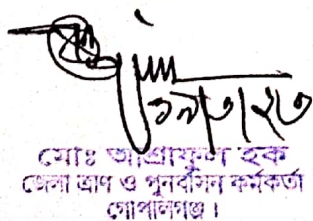 ১৯/৩/২৩
মোঃ আশ্রাফুল হক
জেলা ত্রাণ ও পুনর্বাসন কর্মকর্তা
গোপালগঞ্জ।